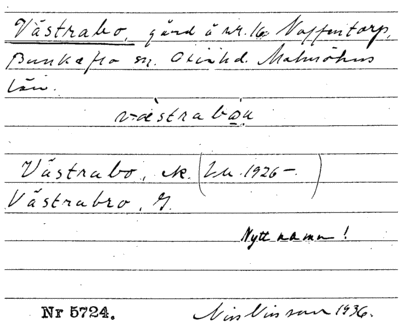 Västrabo, gård å nr. 16 Naffentorp,
Bunkeflo sn. Oxie hd. Malmöhus
län.
Västrabo, sk. (Lu. 1926–)
Västrabro, G.
Nytt namn!
Nr 5724. Nils Nilsson 1936.